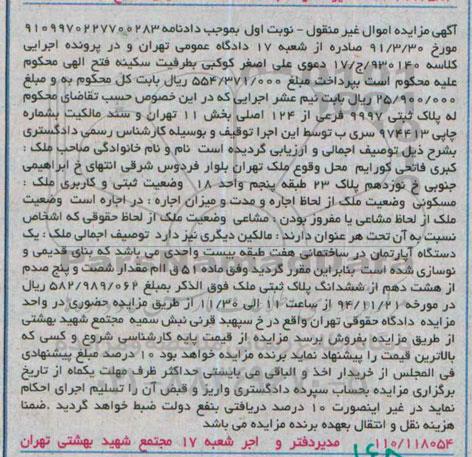 آگهی مزایده اموال غیر منقول - نوبت اول بموجب دادنامه ۹۱۰۹۹۷۰۲۲۷۷۰۰۲۸۳
مورخ ۹۱/۳/۳۰ صادره از شعبه ۱۷ دادگاه عمومی تهران و در پرونده اجرایی
کلاسه ۹۳۰۱۴۰/ج/۱۷ دعوی علی اصغر کوکبی بطرفیت سکینه فتح الهی محکوم
علیه محکوم است بپرداخت مبلغ ۵۵۴/۳۷۲/۰۰۰ ریال بابت کل محکوم به و مبلغ
۲۵/۹۰۰/۰۰۰ ریال بابت نیم عشر اجرایی که در این خصوص حسب تقاضای محکوم
له پلاک ثبتی ۹۹۹۷ فرعی از ۱۲۴ اصلی بخش ۱۱ تهران و سند مالکیت بشماره
چاپی ۹۷۴۴۱۳ سری ب توسط این اجرا توقیف و بوسیله کارشناس رسمی دادگستری
بشرح ذیل توصیف اجمالی و ارزیابی گردیده است نام و نام خانوادگی صاحب ملک :
کبری فاتحی کورایم محل وقوع ملک تهران بلوار فردوس شرقی انتهای خ ابراهیمی
جنوبی خ نوزدهم پلاک ۲۳ طبقه پنجم واحد ۱۸ وضعیت ثبتی و کاربری ملک :
مسکونی وضعیت ملک از لحاظ اجاره و مدت و میزان اجاره : در اجاره است وضعیت
ملک از لحاظ مشاعی یا مفروز بودن : مشاعی وضعیت ملک از لحاظ حقوقی که اشخاص
نسبت به آن تحت هر عنوان دارند : مالکین دیگری نیز دارد توصیف اجمالی ملک : یک
دستگاه آپارتمان در ساختمانی هفت طبقه بیست واحدی می باشد که بنای قدیمی و
نوسازی شده است بنابراین مقرر گردید وفق ماده ۵۱ ق اام مقدار شصت و پنج صدم
از هشت دهم از ششدانگ پلاک ثبتی ملک فوق الذکر بمبلغ ۵۸۲/۹۸۹/۰۶۲ ریال
در مورخه ۹۴/۱۱/۲۱ از ساعت ۱۱ الی ۱۱/۳۰ از طریق مزایده حضوری در واحد
مزایده دادگاه حقوقی تهران واقع در خ سپهبد قرنی نبش سمیه مجتمع شهید بهشتی
از طریق مزایده بفروش برسد مزایده از قیمت پایه کارشناسی شروع و کسی که
بالاترین قیمت را پیشنهاد نماید برنده مزایده خواهد بود ۱۰ درصد مبلغ پیشنهادی
فی المجلس از خریدار اخذ و الباقی می بایستی حداکثر ظرف مهلت یکماه از تاریخ
برگزاری مزایده بحساب سپرده دادگستری واریز و قبض آن را تسلیم اجرای احکام
نماید در غیر اینصورت ۱۰ درصد دریافتی بنفع دولت ضبط خواهد گردید .ضمنا
هزینه نقل و انتقال بعهده برنده مزایده می باشد
۱۱۰/۱۱۸۰۵۴ مدیردفتر و اجر شعبه ۱۷ مجتمع شهید بهشتی تهران